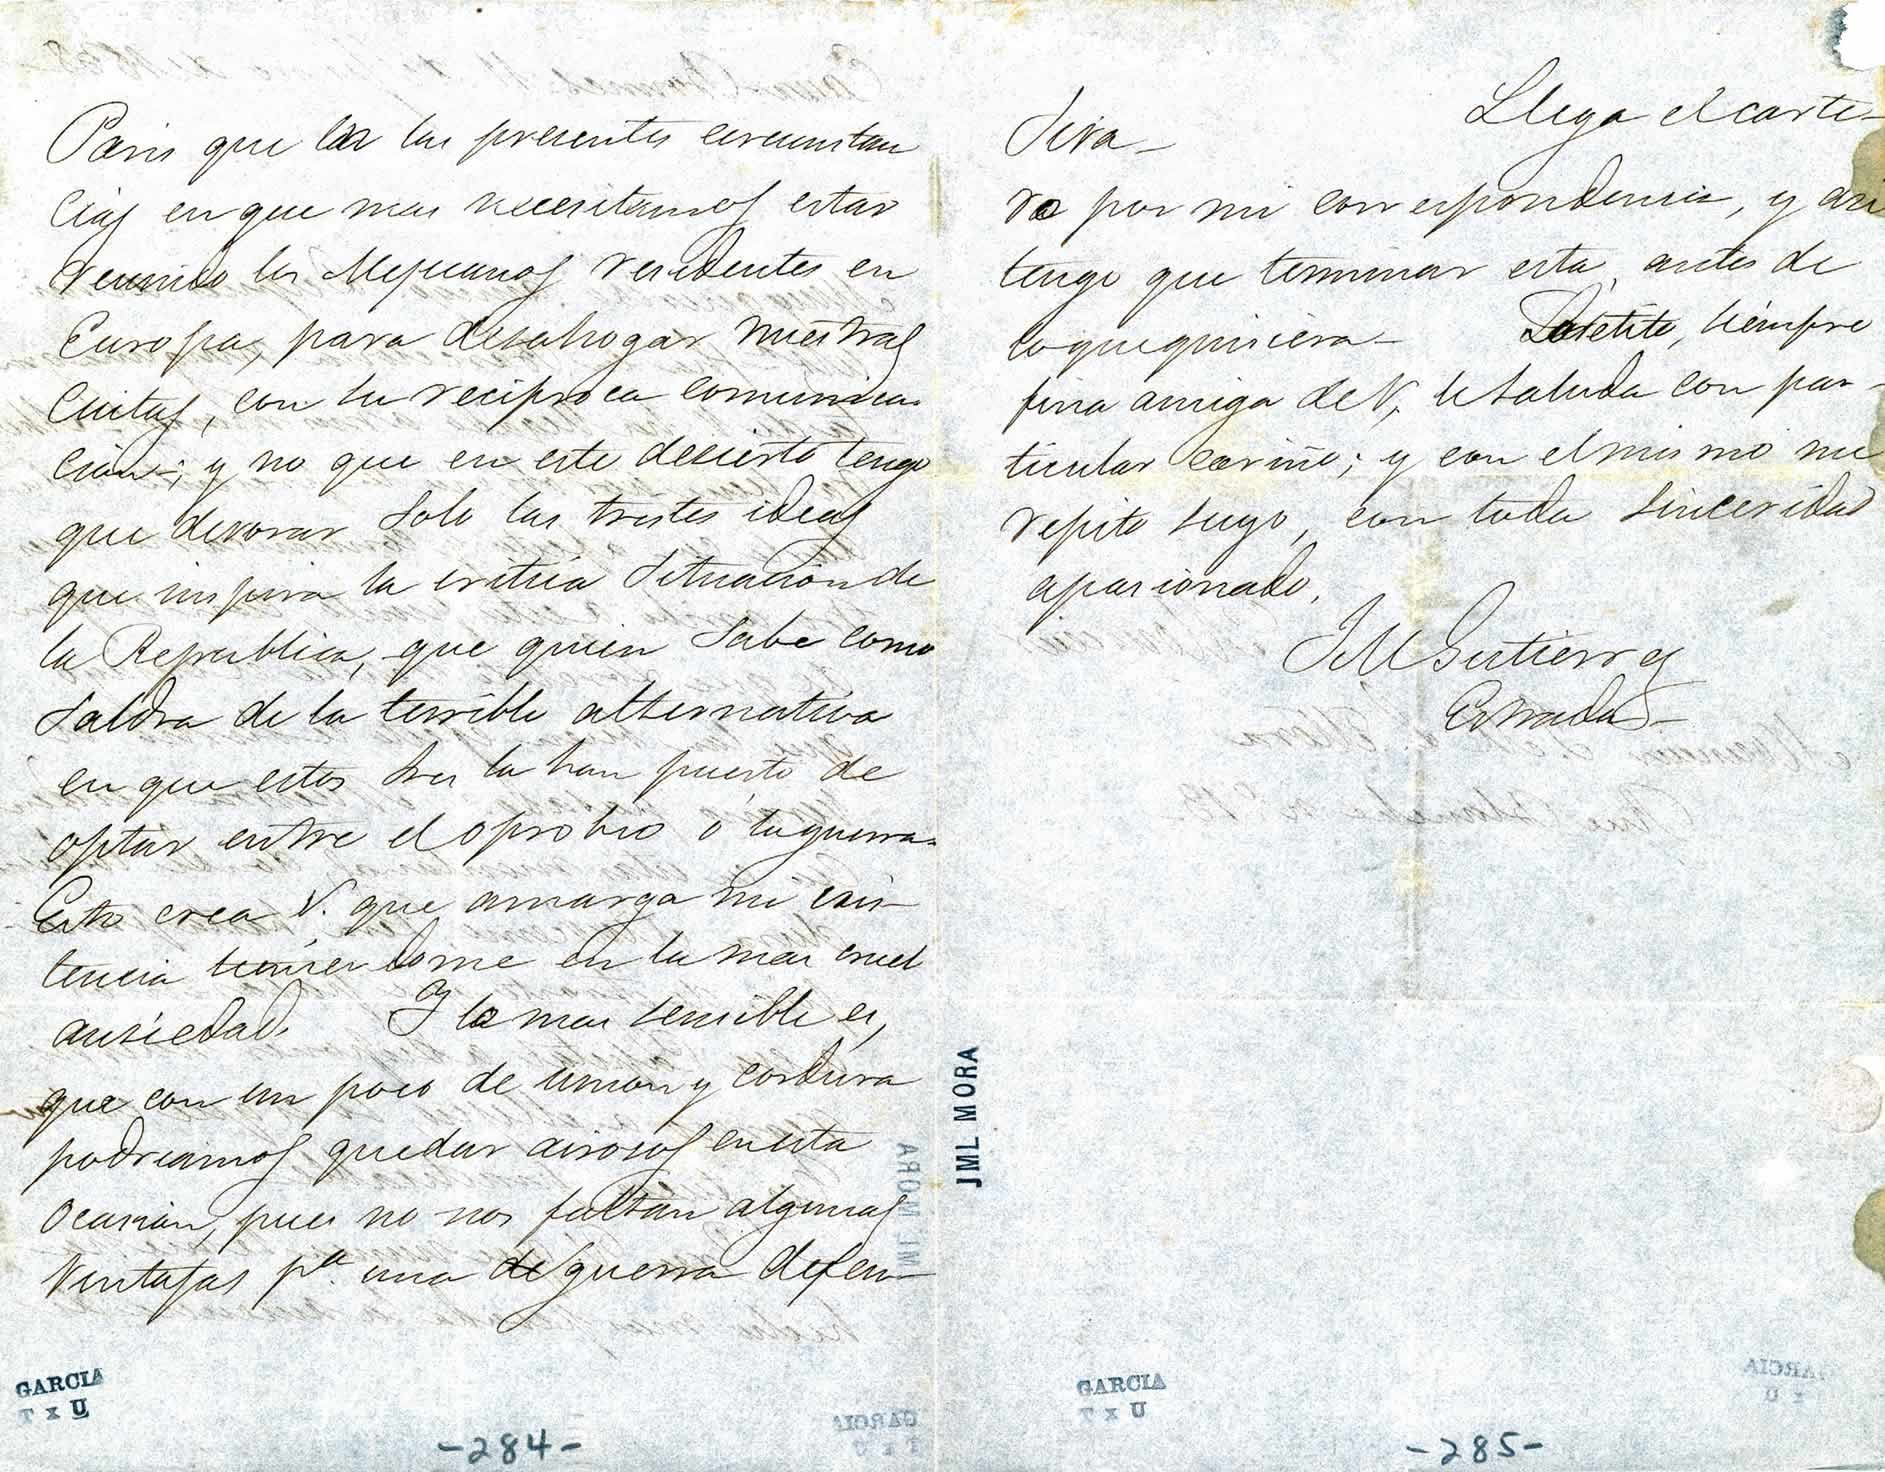 Paris que en las presentes circunstan
cias en que mas necesitamos estar
reunido los Mejicanos residentes en
Europa, para desahogar nuestras
Cuitas, con su reciproca comunica-
cion-; y no que en este desierto tengo
que devorar solo las tristes ideas
que inspira la critica situacion de
la Republica, que quien sabe como
saldra de la terrible alternativa
en que estos la han puesto de
optar entre el oprobio ó la guerra-
Esto crea V. que amarga mi exis-
tencia teniendome en la mas cruel
ansiedad. Y lo mas sensible es,
que con un poco de union y cordura
podriamos quedar airosos en esta
ocasion, pues no nos faltan algunas
Ventajas pa. una de guerra defen-
GARCIA
T x U
-284-
JML MORA
Siva- Llega el carte-
ro por mi correspondencia, y asi
tengo que terminar esta, antes de
lo que quisiera- siempre
fina amiga de V, le saluda con par-
ticular cariño; y con el mismo me
repito suyo, con toda sinceridad
apasionado.
J M Gutierrez
Estrada-
GARCIA
T x U
-285-